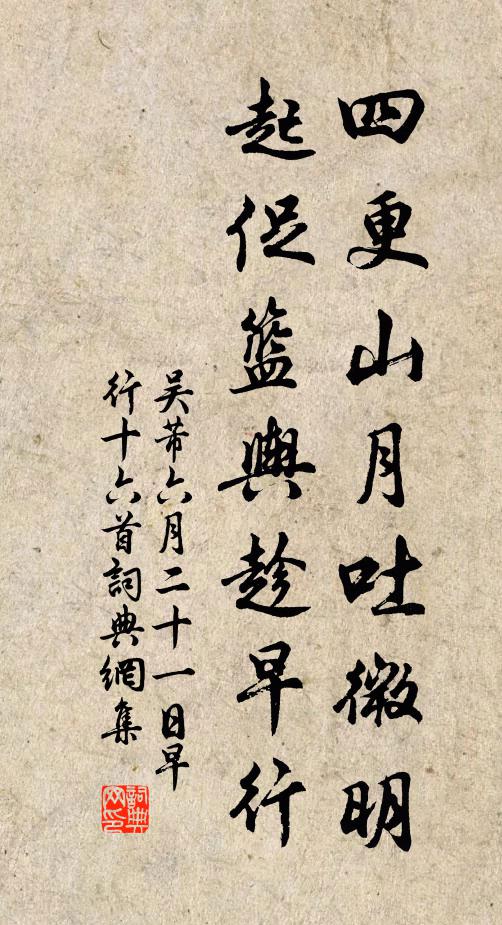 四更山月吐微明
起促籃輿趁早行
吴芾六月二十一日早
行十六首詞典網集
詞典
网印